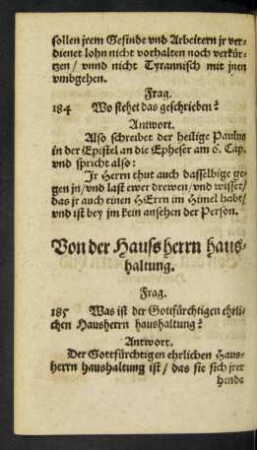 sollen jrem Gesinde vnd Arbeitern jr ver-
dienet lohn nicht vorhalten noch verkür-
tzen / vnnd nicht Tyrannisch mit jnen
vmbgehen.
Frag.
184 Wo stehet das geschrieben?
Antwort.
Also schreibet der heilige Paulus
in der Epistel an die Epheser am 6. Cap.
vnd spricht also:
Jr Herrn thut auch dasselbige ge-
gen jn / vnd last ewer drewen / vnd wisset /
das jr auch einen HErrn im Himel habt /
vnd ist bey jm kein ansehen der Person.
Von der Haußherrn haus-
haltung.
Frag.
185 Was ist der Gottfürchtigen ehrli-
chen Hausherrn haushaltung?
Antwort.
Der Gottfürchtigen ehrlichen Haus-
herrn haushaltung ist / das sie sich jrer
hende